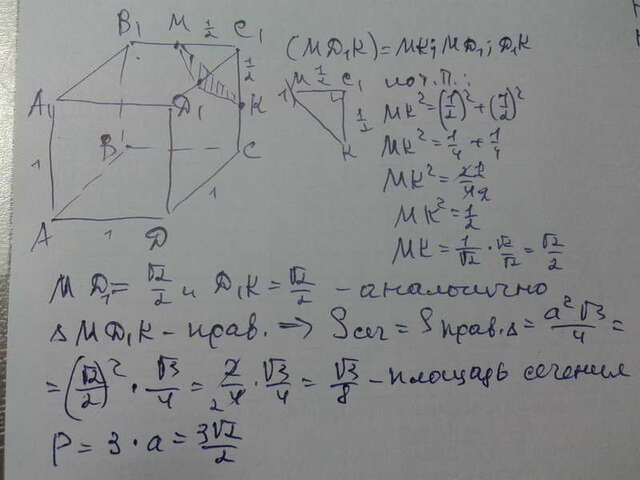 B₁ M ½ C₁
(MD₁K) = MK; MD₁; D₁K
½
A₁ D₁ K
M ½ C₁
½
K
по т. П.:
MK² = (½)² + (½)²
MK² = ¼ + ¼
MK² = 2/4
MK² = ½
MK = 1/√2 · √2/√2 = √2/2
1 B C
1
A 1 D
MD₁ = √2/2 и D₁K = √2/2 – аналогично
Δ MD₁K – прав. ⇒ Sсеч = Sправ.Δ = a²√3/4 =
= (√2/2)² · √3/4 = 2/4 · √3/4 = √3/8 – площадь сечения
P = 3 · a = 3√2/2